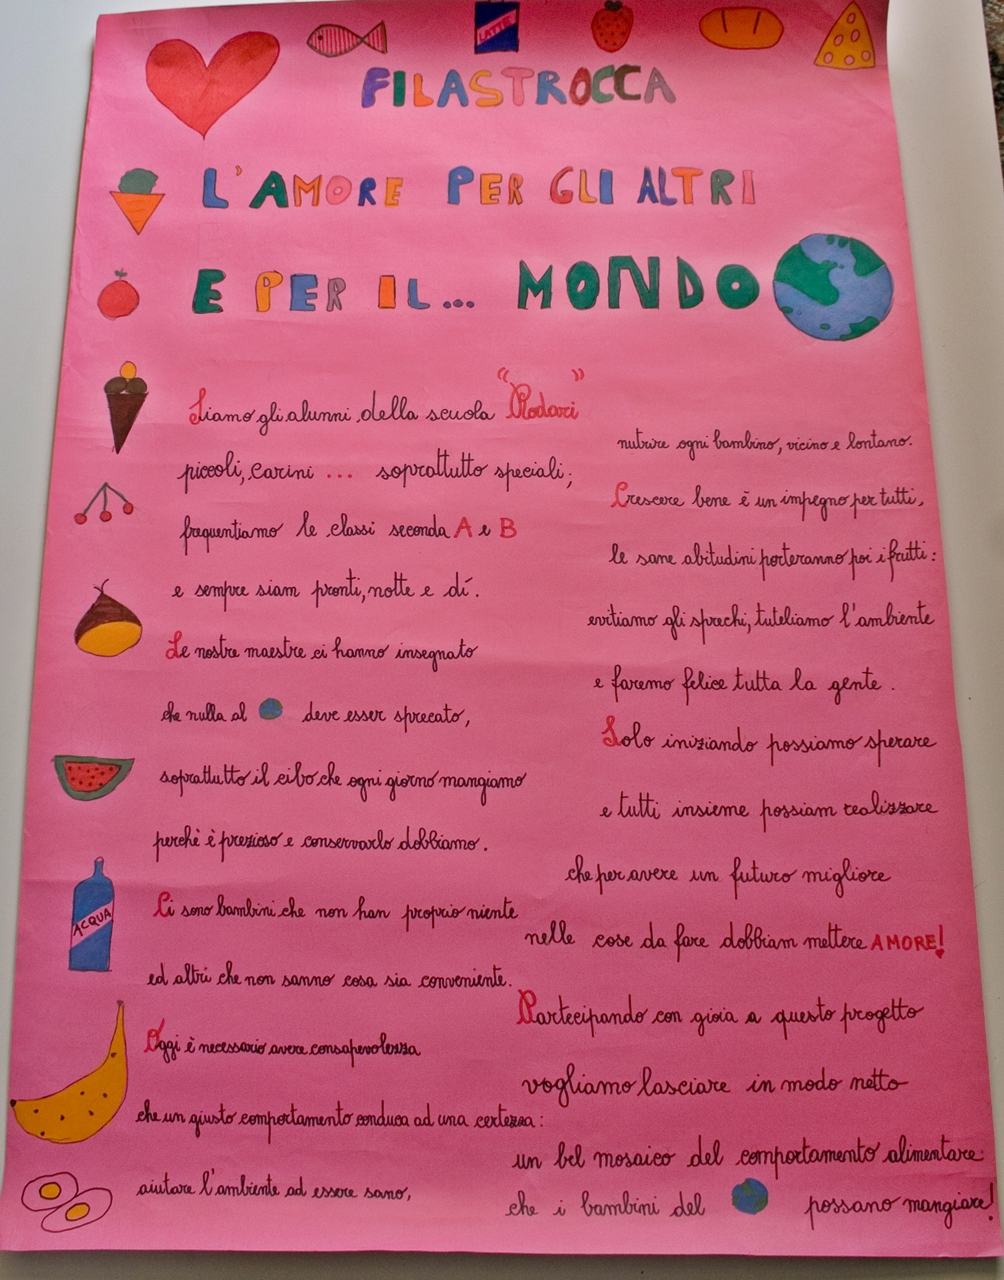 LATTE
FILASTROCCA
L'AMORE PER GLI ALTRI
E PER IL... MONDO
Siamo gli alunni della scuola "Rodari"
piccoli, carini ... soprattutto speciali;
frequentiamo le classi seconda A e B
e sempre siam pronti, notte e dí.
Le nostre maestre ci hanno insegnato
che nulla al deve esser sprecato,
soprattutto il cibo che ogni giorno mangiamo
perchè è prezioso e conservarlo dobbiamo.
Ci sono bambini che non han proprio niente
ed altri che non sanno cosa sia conveniente.
Oggi è necessario avere consapevolezza
che un giusto comportamento conduca ad una certezza:
aiutare l'ambiente ad essere sano,
ACQUA
nutrire ogni bambino, vicino e lontano.
Crescere bene è un impegno per tutti,
le sane abitudini porteranno poi i frutti:
evitiamo gli sprechi, tuteliamo l'ambiente
e faremo felice tutta la gente.
Solo iniziando possiamo sperare
e tutti insieme possiam realizzare
che per avere un futuro migliore
nelle cose da fare dobbiam mettere AMORE!
Partecipando con gioia a questo progetto
vogliamo lasciare in modo netto
un bel mosaico del comportamento alimentare
che i bambini del possano mangiare!